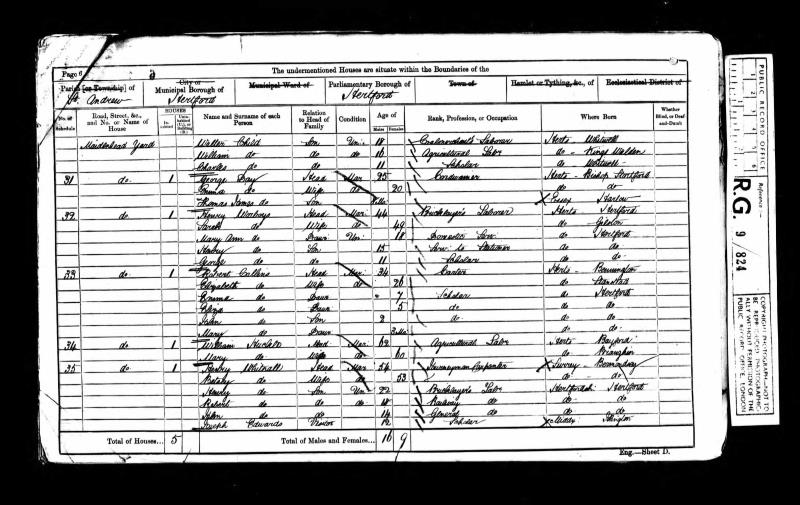 Page 6
The undermentioned Houses are situate within the Boundaries of the
Parish [or Township] of
St. Andrew
City or
Municipal Borough of
Hertford
Municipal Ward of
Parliamentary Borough of
Hertford
Town of
Hamlet or Tything, &c., of
Ecclesiastical District of
No. of Schedule
Road, Street, &c., and No. or Name of House
HOUSES
Inhabited
Name and Surname of each Person
Relation to Head of Family
Condition
Age of
Males
Females
Rank, Profession, or Occupation
Where Born
Whether Blind, or Deaf-and-Dumb
Maidenhead Yard Walter Child Son Un 18 Labourer Herts Whitwell
William do do do 16 Agricultural Labr do Kings Walden
Charles do do 11 Scholar do Whitwell
31 do 1 George Day Head Mar 25 Cordwainer Herts Bishop Stortford
Emma do Wife do 20 do do
Thomas James do Son Essex Harlow
32 do 1 Henry Head Mar 44 Labourer Herts Hertford
Sarah do Wife do 49 do Gilston
Mary Ann do Daur Un 18 Domestic Serv do Hertford
Henry do Son 15 Serv to Stationer do do
George do do 11 Scholar do do
33 do 1 Robert Collins Head Mar 34 Carter Herts Bennington
Elizabeth do Wife do 26 do
Emma do Daur 7 Scholar do Hertford
do Daur 5 do do do
John do Son 2 do do do
Mary do Daur 3 Mo do do
34 do 1 William Head Mar 62 Agricultural Labr Herts Bayford
Mary do Wife do 60 do Braughin
35 do 1 Henry Whitnall Head Mar 54 Journeyman Carpenter Surrey Bermondsey
Betsey do Wife do 53 do do
Henry do Son Un 22 Labr Hertfordsh Hertford
Robert do do do 18 Railway do do do
John do do 14 General do do do
Joseph Edwards Visitor 12 Scholar Islington
Total of Houses... 5
Total of Males and Females... 16 9
Eng.—Sheet D.
PUBLIC RECORD OFFICE
1 2 3 4 5 6
Reference :-
R.G. 9/824
COPYRIGHT PHOTOGRAPH—NOT TO BE REPRODUCED PHOTOGRAPHICALLY WITHOUT PERMISSION OF THE PUBLIC RECORD OFFICE, LONDON